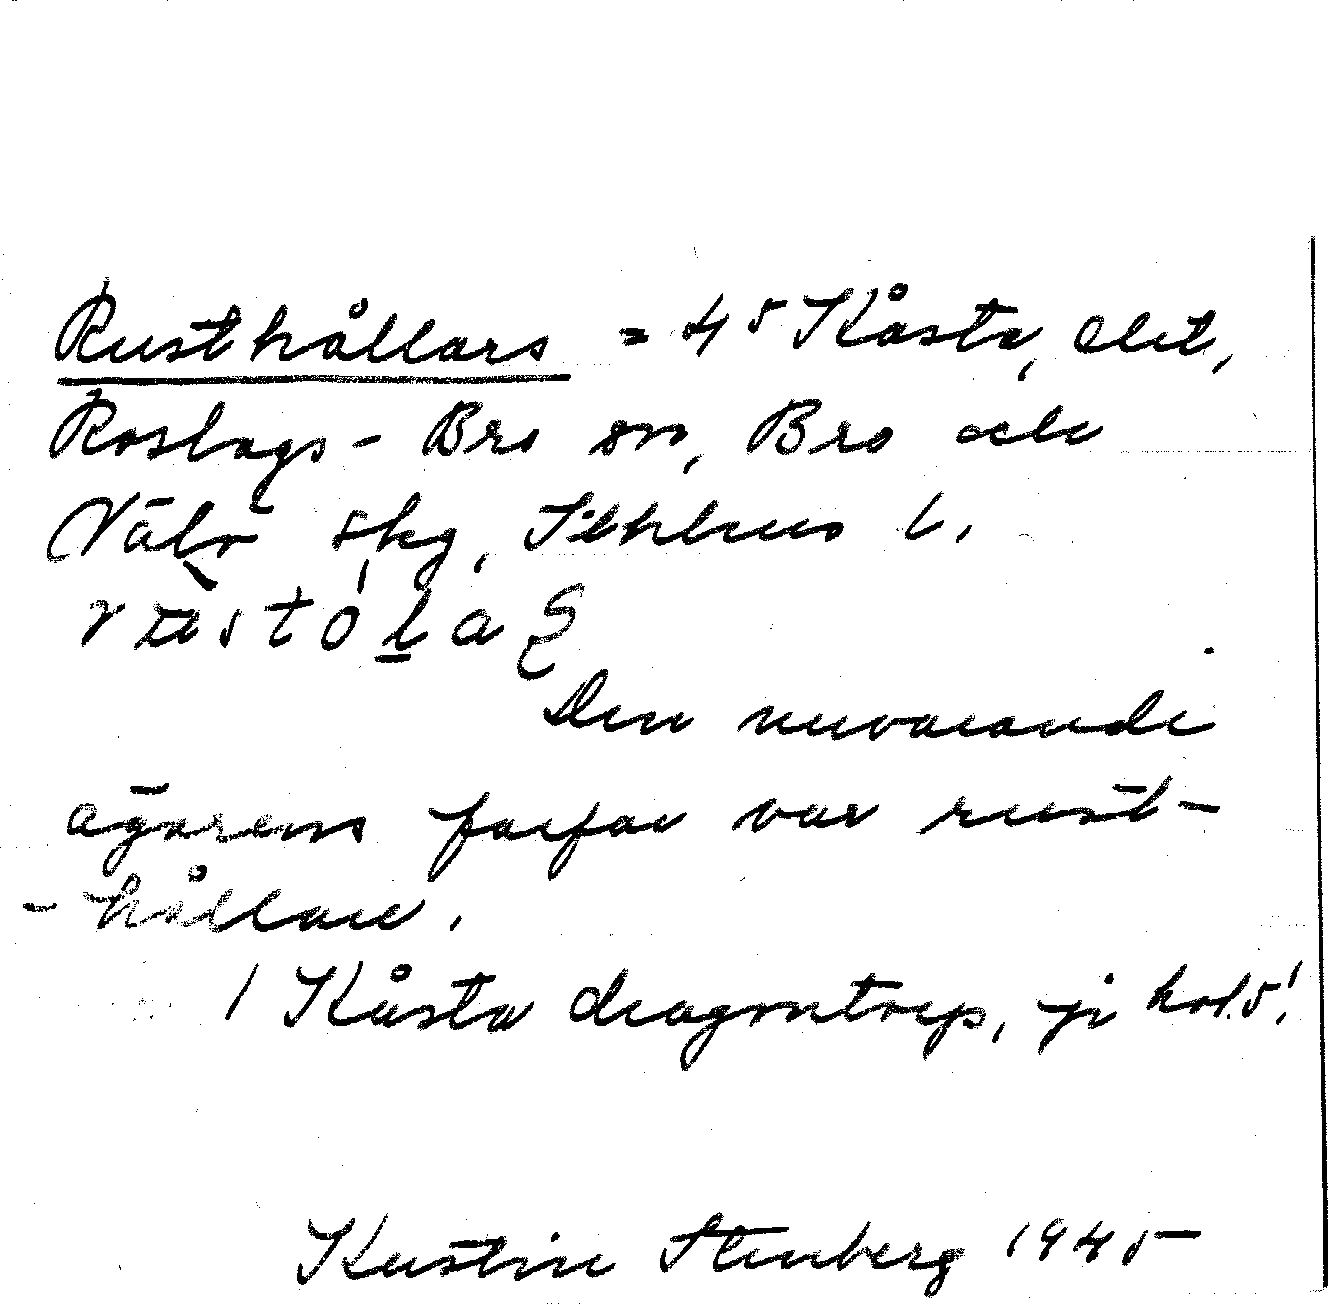 Rusthållars = 4⁵ Kåsta, Elit,
Roslags-Bro sn, Bro och
Vätö skg, Sthlms l.
Den nuvarande
ägarens farfar var rust-
-hållare.
1 Kåsta dragontorp, ji hol.s!
Kristine Stenberg 1945